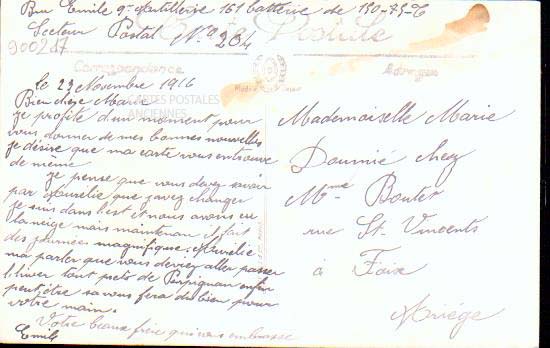 Bru Emile 9e Artillerie 161 batterie de 150-75-C
Secteur Postal N° 204
Carte Postale
900217
Correspondance
Adresse
le 23 Novembre 1916
Bien chère Marie
CARTES POSTALES
ANCIENNES
je profite d'un moment pour
vous donner de mes bonnes nouvelles
je désire que ma carte vous entrouve
de même.
je pense que vous devez savoir
par Aurélie que j'avez changer
je suis dans l'est et nous avons eu
la neige mais maintenant il fait
des journées magnifique, Aurélie
ma parler que vous devriez aller passer
l'hiver tout prets de Perpignan enfin
peut être sa vous fera du bien pour
votre main.
Votre beaux frère qui vous embrasse
Emile
Mademoiselle Marie
Doumié chez
Mme Bouter
rue St. Vincents
à Foix
Ariége